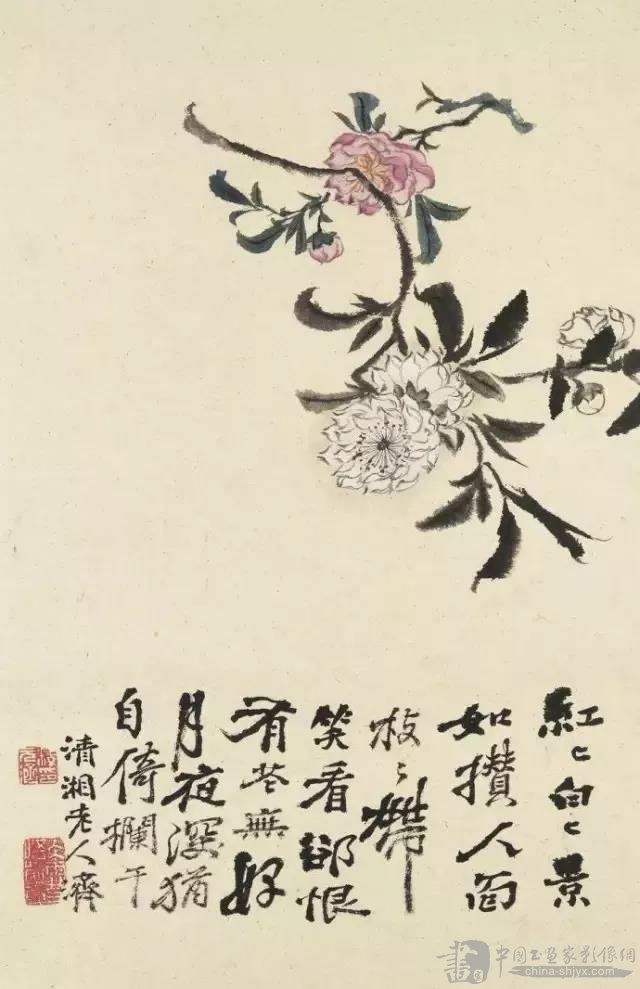 紅〻白〻景
如攢人面
枝〻帶
笑看卻恨
有花無好
月夜深猶
自倚欄干
清湘老人濟
中國书画家影像網
china-shjyx.com